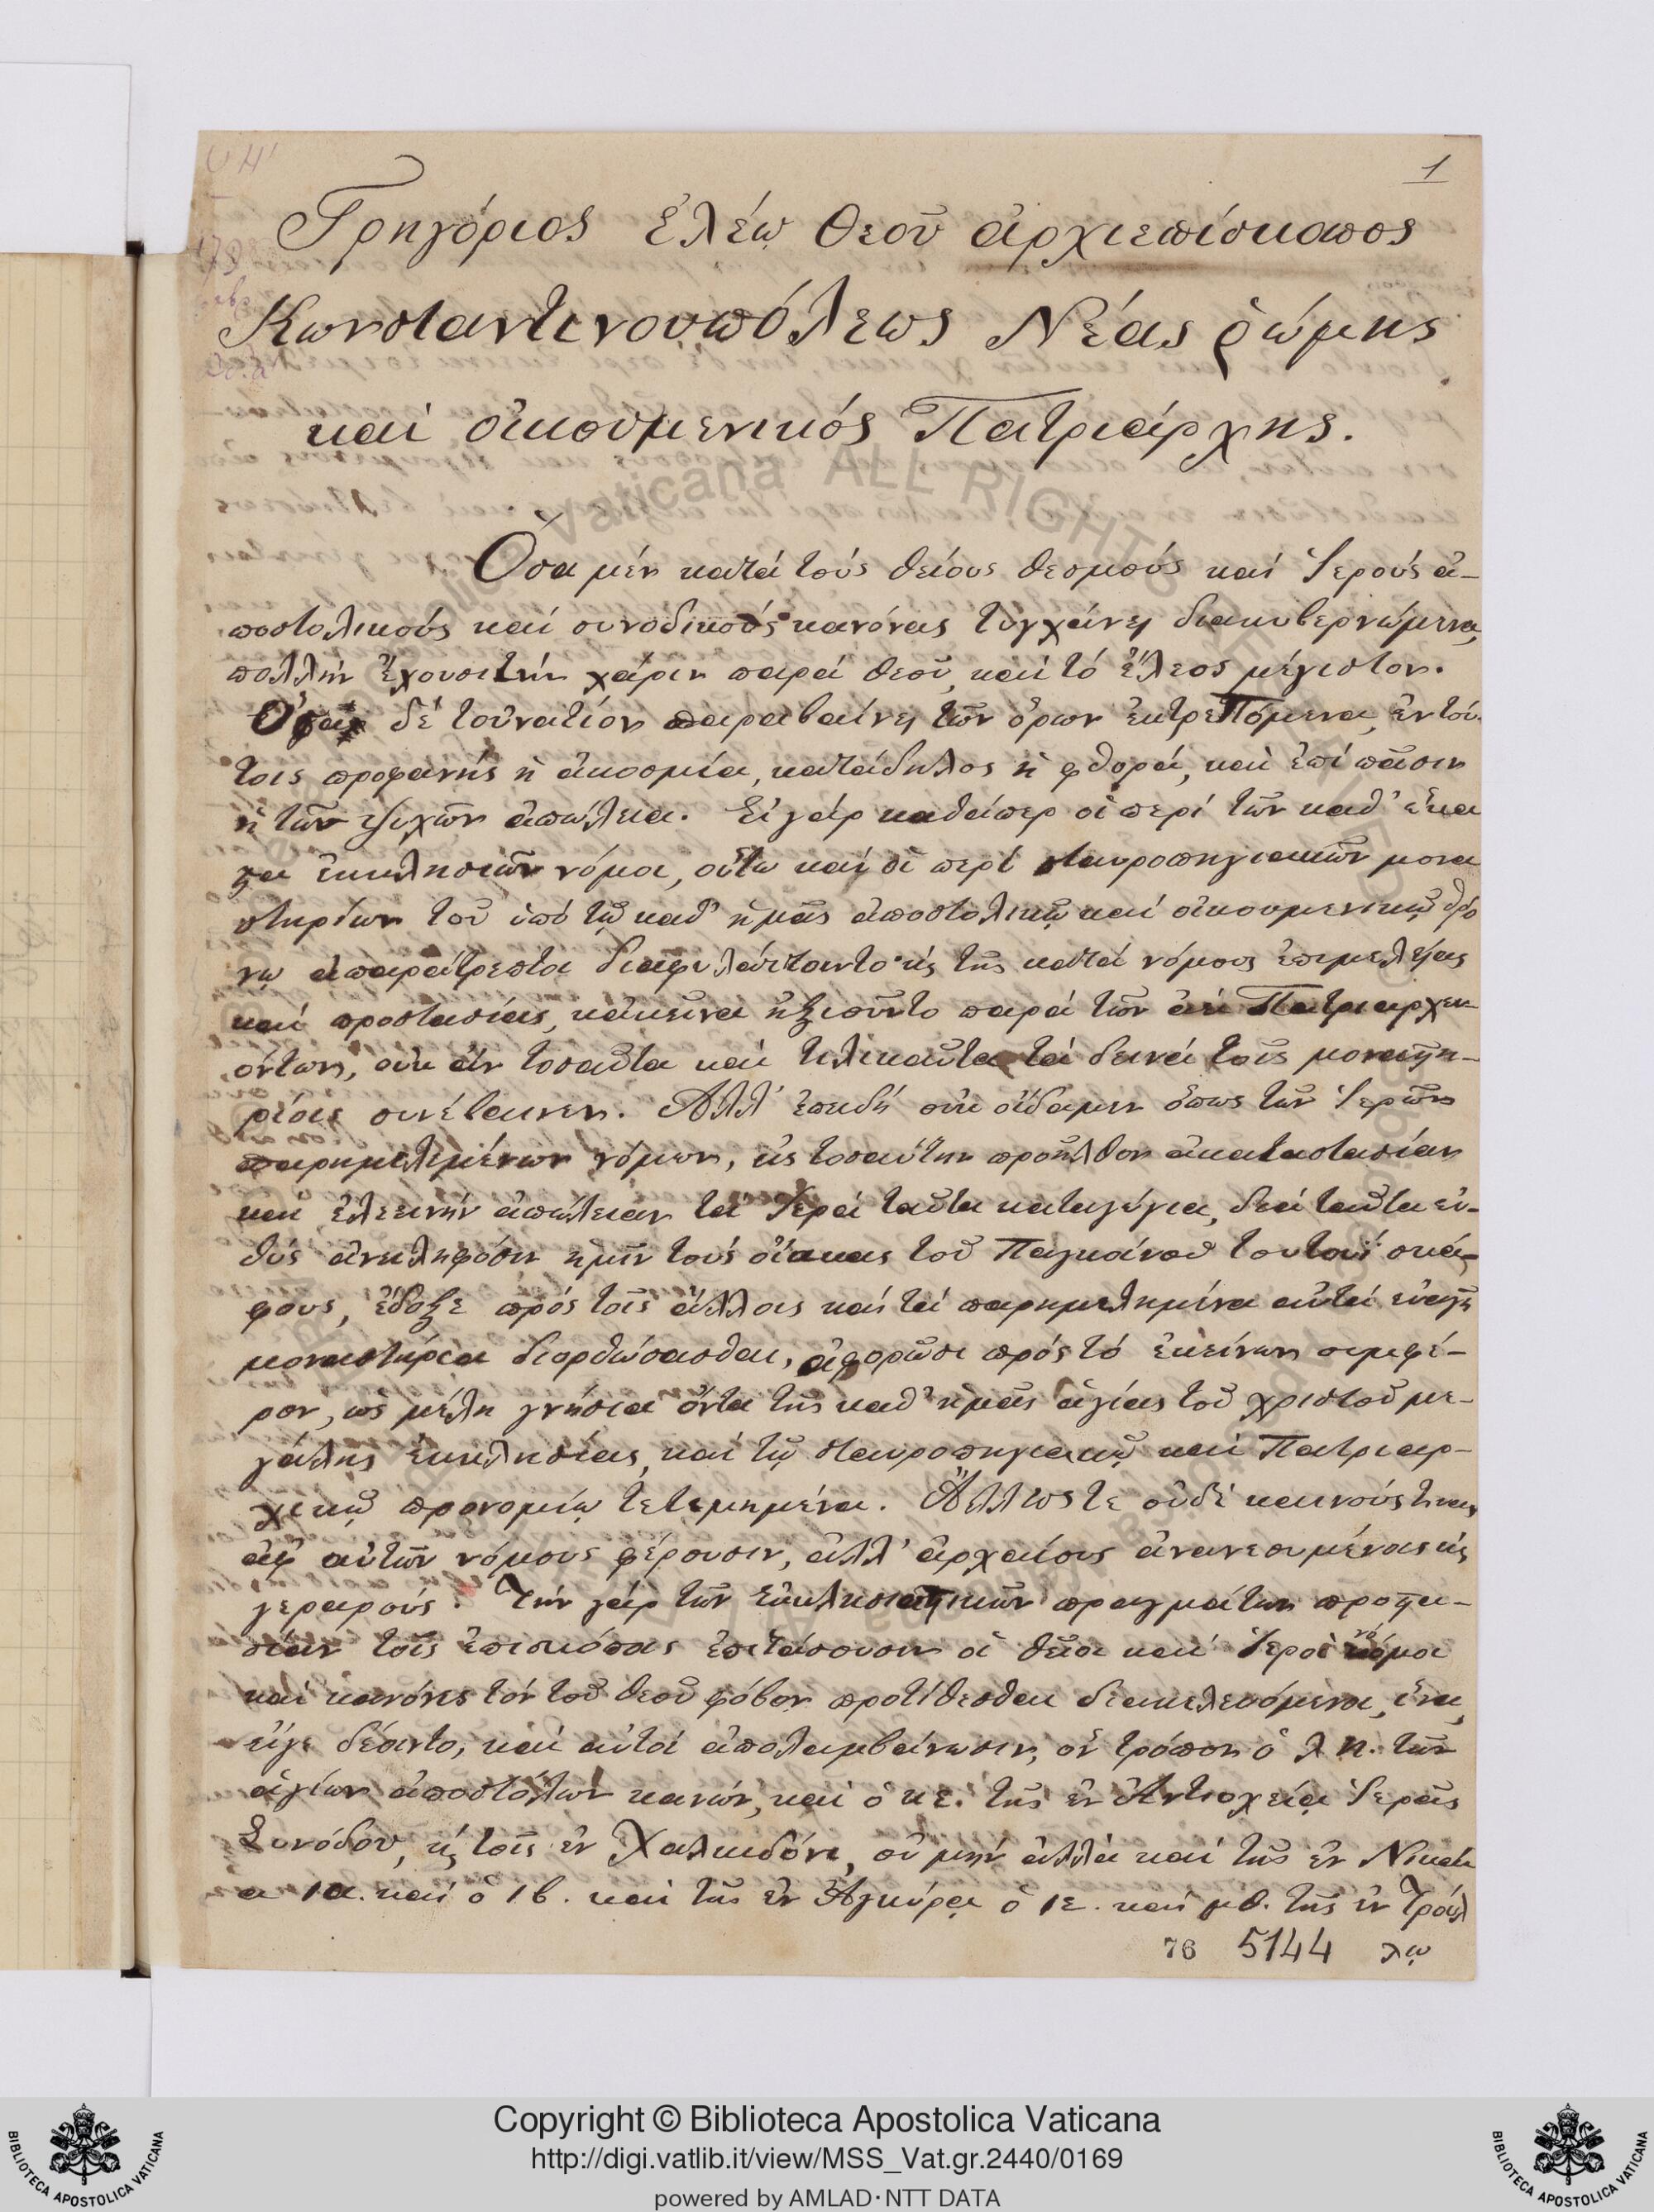 1
Γρηγόριος ἐλέῳ Θεοῦ ἀρχιεπίσκοπος
Κωνσταντινουπόλεως Νέας ῥώμης
καί οἰκουμενικός Πατριάρχης.
Ὅσα μέν κατά τούς θείους θεσμούς καί ἱερούς ἀ-
ποστολικούς καί συνοδικούς κανόνας τυγχάνει διακυβερνώμενα,
πολλήν ἔχουσι τήν χάριν παρά θεοῦ, καί τό ἔλεος μέγιστον.
Ὅσα δέ τοὐναντίον παραβαίνει τῶν ὅρων ἐκτρεπόμενα, ἐν τού-
τοις προφανής ἡ ἀκοσμία, κατάδηλος ἡ φθορά, καί ἐπί πᾶσιν
ἡ τῶν ψυχῶν ἀπώλεια. Εἰ γάρ καθάπερ οἱ περί τῶν καθ' ἕκα
ϛα ἐκκλησιῶν νόμοι, οὕτω καί οἱ περί σταυροπηγιακῶν μονα
στηρίων τοῦ ὑπό τῷ καθ' ἡμᾶς ἀποστολικῷ καί οἰκουμενικῷ θρό
νῳ ἀπαράτρεπτοι διαφυλάττοιντο κ̀ τῆς κατά νόμους ἐπιμελείας
καί προστασίας, κἀκεῖνα ἠξιοῦντο παρά τῶν ἀεί Πατριαρχευ-
όντων, οὐκ ἄν τοσαῦτα καί τηλικαῦτα τά δεινά τοῖς μοναϛη-
ρίοις συνέβαινεν. Ἀλλ' ἐπειδή οὐκ οἴδαμεν ὅπως τῶν ἱερῶν
παρημελημένων νόμων, εἰς τοσαύτην προῆλθον ἀκαταστασίαν
καί ἐλεεινήν ἀπώλειαν τά ἱερά ταῦτα καταγώγια, διά ταῦτα εὐ-
θύς ἀνειληφόσιν ἡμῖν τούς οἴακας τοῦ Παγκοίνου τουτουί σκά-
φους, ἔδοξε πρός τοῖς ἄλλοις καί τά παρημελημένα αὐτά εὐαγῆ
μοναστήρια διορθώσασθαι, ἀφορῶσι πρός τό ἐκείνων συμφέ-
ρον, ὡς μέλη γνήσια ὄντα τῆς καθ' ἡμᾶς ἁγίας τοῦ χριστοῦ με-
γάλης ἐκκλησίας, καί τῷ σταυροπηγιακῷ καί Πατριαρ-
χικῷ προνομίῳ τετιμημένα. Ἄλλως τε οὐδέ καινούς τινας
ἀφ αὑτῶν νόμους φέρουσιν, ἀλλ' ἀρχαίους ἀνανεουμένοις κ̀
γεραρούς. Τήν γάρ τῶν ἐκκλησιαϛικῶν πραγμάτων προϛα-
σίαν τοῖς ἐπισκόποις ἐπιτάσσουσιν οἱ θεῖοι καί ἱεροί νόμοι
καί κανόνες τόν τοῦ θεοῦ φόβον προτίθεσθαι διακελευόμενοι, ἵνα,
εἴγε δέοιντο, καί αὐτοί ἀπολαμβάνωσιν, ὅν τρόπον ὁ λη. τῶν
ἁγίων ἀποστόλων κανών, καί ὁ κε. τῆς ἐν Ἀντιοχείᾳ ἱερᾶς
Συνόδου, κ̀ τοῖς ἐν Χαλκηδόνι, οὐ μήν ἀλλά καί τῆς ἐν Νικαίᾳ
ο ια. καί ὁ ιβ. καί τῆς ἐν Ἀγκύρᾳ ὁ ιε. καί μθ. τῆς ἐν Τρούλ
76 5144 λῳ
Copyright © Biblioteca Apostolica Vaticana
http://digi.vatlib.it/view/MSS_Vat.gr.2440/0169
powered by AMLAD·NTT DATA
BIBLIOTECA APOSTOLICA VATICANA
BIBLIOTECA APOSTOLICA VATICANA